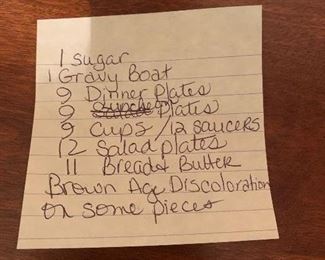 1 sugar
1 Gravy Boat
9 Dinner Plates
9 Plates
9 cups / 12 saucers
12 Salad plates
11 Bread & Butter
Brown Age Discoloration
on some pieces